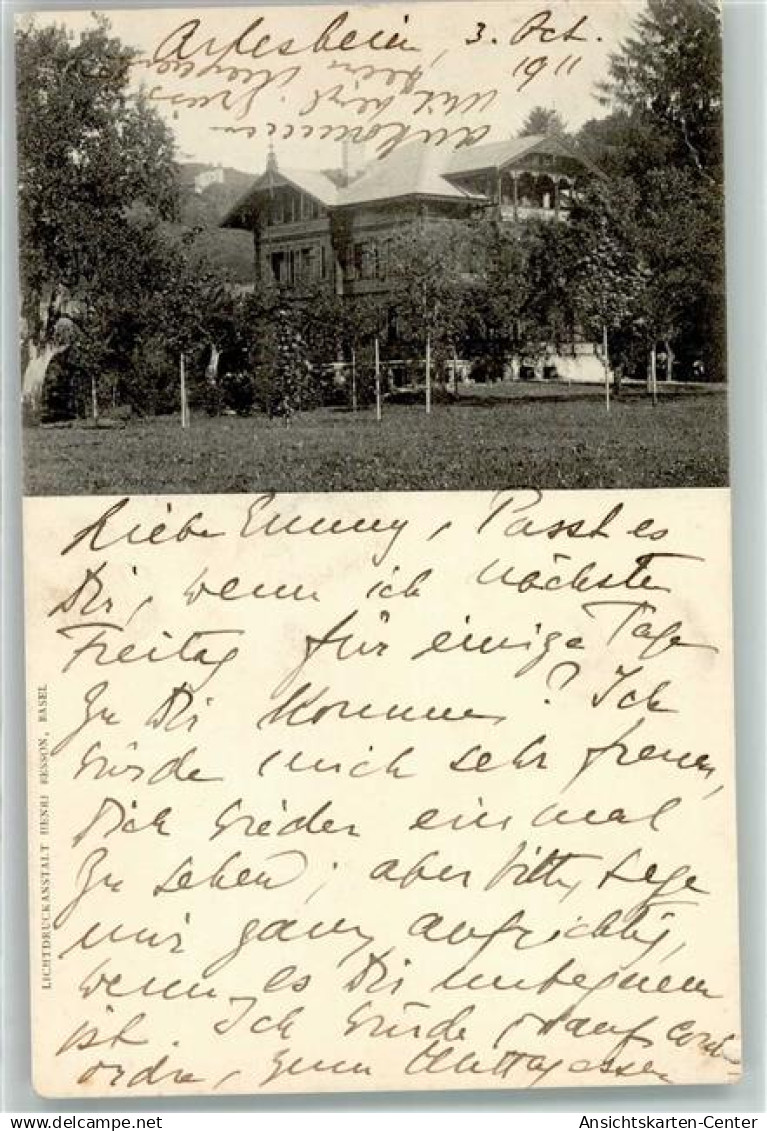 Arlesheim, 3. Oct.
1911
ankommen
Liebe Emmy, Passt es
Dir, wenn ich nächsten
Freitag für einige Tage
zu Dir komme? Ich
würde mich sehr freuen,
Dich wieder einmal
zu sehen; aber bitte, sage
mir ganz aufrichtig,
wenn es Dir unbequem
ist. Ich würde, sauf cont-
ordre, zum Mittagessen
LICHTDRUCKANSTALT HENRI BESSON, BASEL
Ansichtskarten-Center